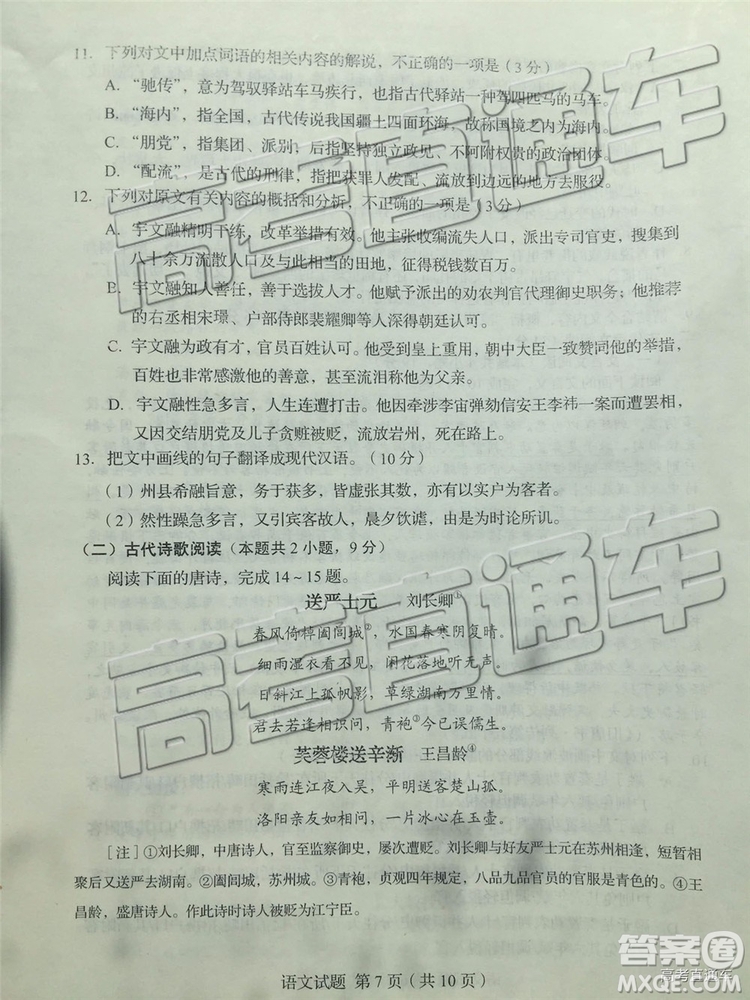 11. 下列对文中加点词语的相关内容的解说，不正确的一项是（3分）
A. “驰传”，意为驾驭驿站车马疾行，也指古代驿站一种驾四匹马的马车。
B. “海内”，指全国，古代传说我国疆土四面环海，故称国境之内为海内。
C. “朋党”，指集团、派别；后指坚持独立政见、不阿附权贵的政治团体。
D. “配流”，是古代的刑律，指把获罪人发配、流放到边远的地方去服役。
12. 下列对原文有关内容的概括和分析，不正确的一项是（3分）
A. 宇文融精明干练，改革举措有效。他主张收编流失人口，派出专司官吏，搜集到
八十余万流散人口及与此相当的田地，征得税钱数百万。
B. 宇文融知人善任，善于选拔人才。他赋予派出的劝农判官代理御史职务；他荐举
的右丞相宋璟、户部侍郎裴耀卿等人，深得朝廷认可。
C. 宇文融为政有才，官员百姓认可。他受到皇上重用，朝中大臣一致赞同他的举措，
百姓也常感激他的善意，甚至流泪称他为父亲。
D. 宇文融性急多言，人生连遭打击。他因牵涉李宙弹劾信安王李祎一案而遭罢相，
又因交结朋党及儿子贪赃被贬，流放岩州，死在路上。
13. 把文中画线的句子翻译成现代汉语。（10分）
（1）州县希融旨意，务于获多，皆虚张其数，亦有以实户为客者。
（2）然性躁急多言，又引宾客故人，晨夕饮谑，由是为时论所讥。
（二）古代诗歌阅读（本题共2小题，9分）
阅读下面的唐诗，完成14～15题。
送严士元 刘长卿①
春风倚棹阖闾城②，水国春寒阴复晴。
细雨湿衣看不见，闲花落地听无声。
日斜江上孤帆影，草绿湖南万里情。
君去若逢相识问，青袍③今已误儒生。
芙蓉楼送辛渐 王昌龄④
寒雨连江夜入吴，平明送客楚山孤。
洛阳亲友如相问，一片冰心在玉壶。
［注］①刘长卿，中唐诗人，官至监察御史，屡次遭贬。刘长卿与好友严士元在苏州相逢，短暂相
聚后又送严去湖南。②阖闾城，苏州城。③青袍，贞观四年规定，八品九品官员的官服是青色的。④王
昌龄，盛唐诗人。作此诗时诗人被贬为江宁臣。
语文试题 第7页（共10页）
高考直通车
高考直通车
答案圈
高考直通车
MXQE.COM